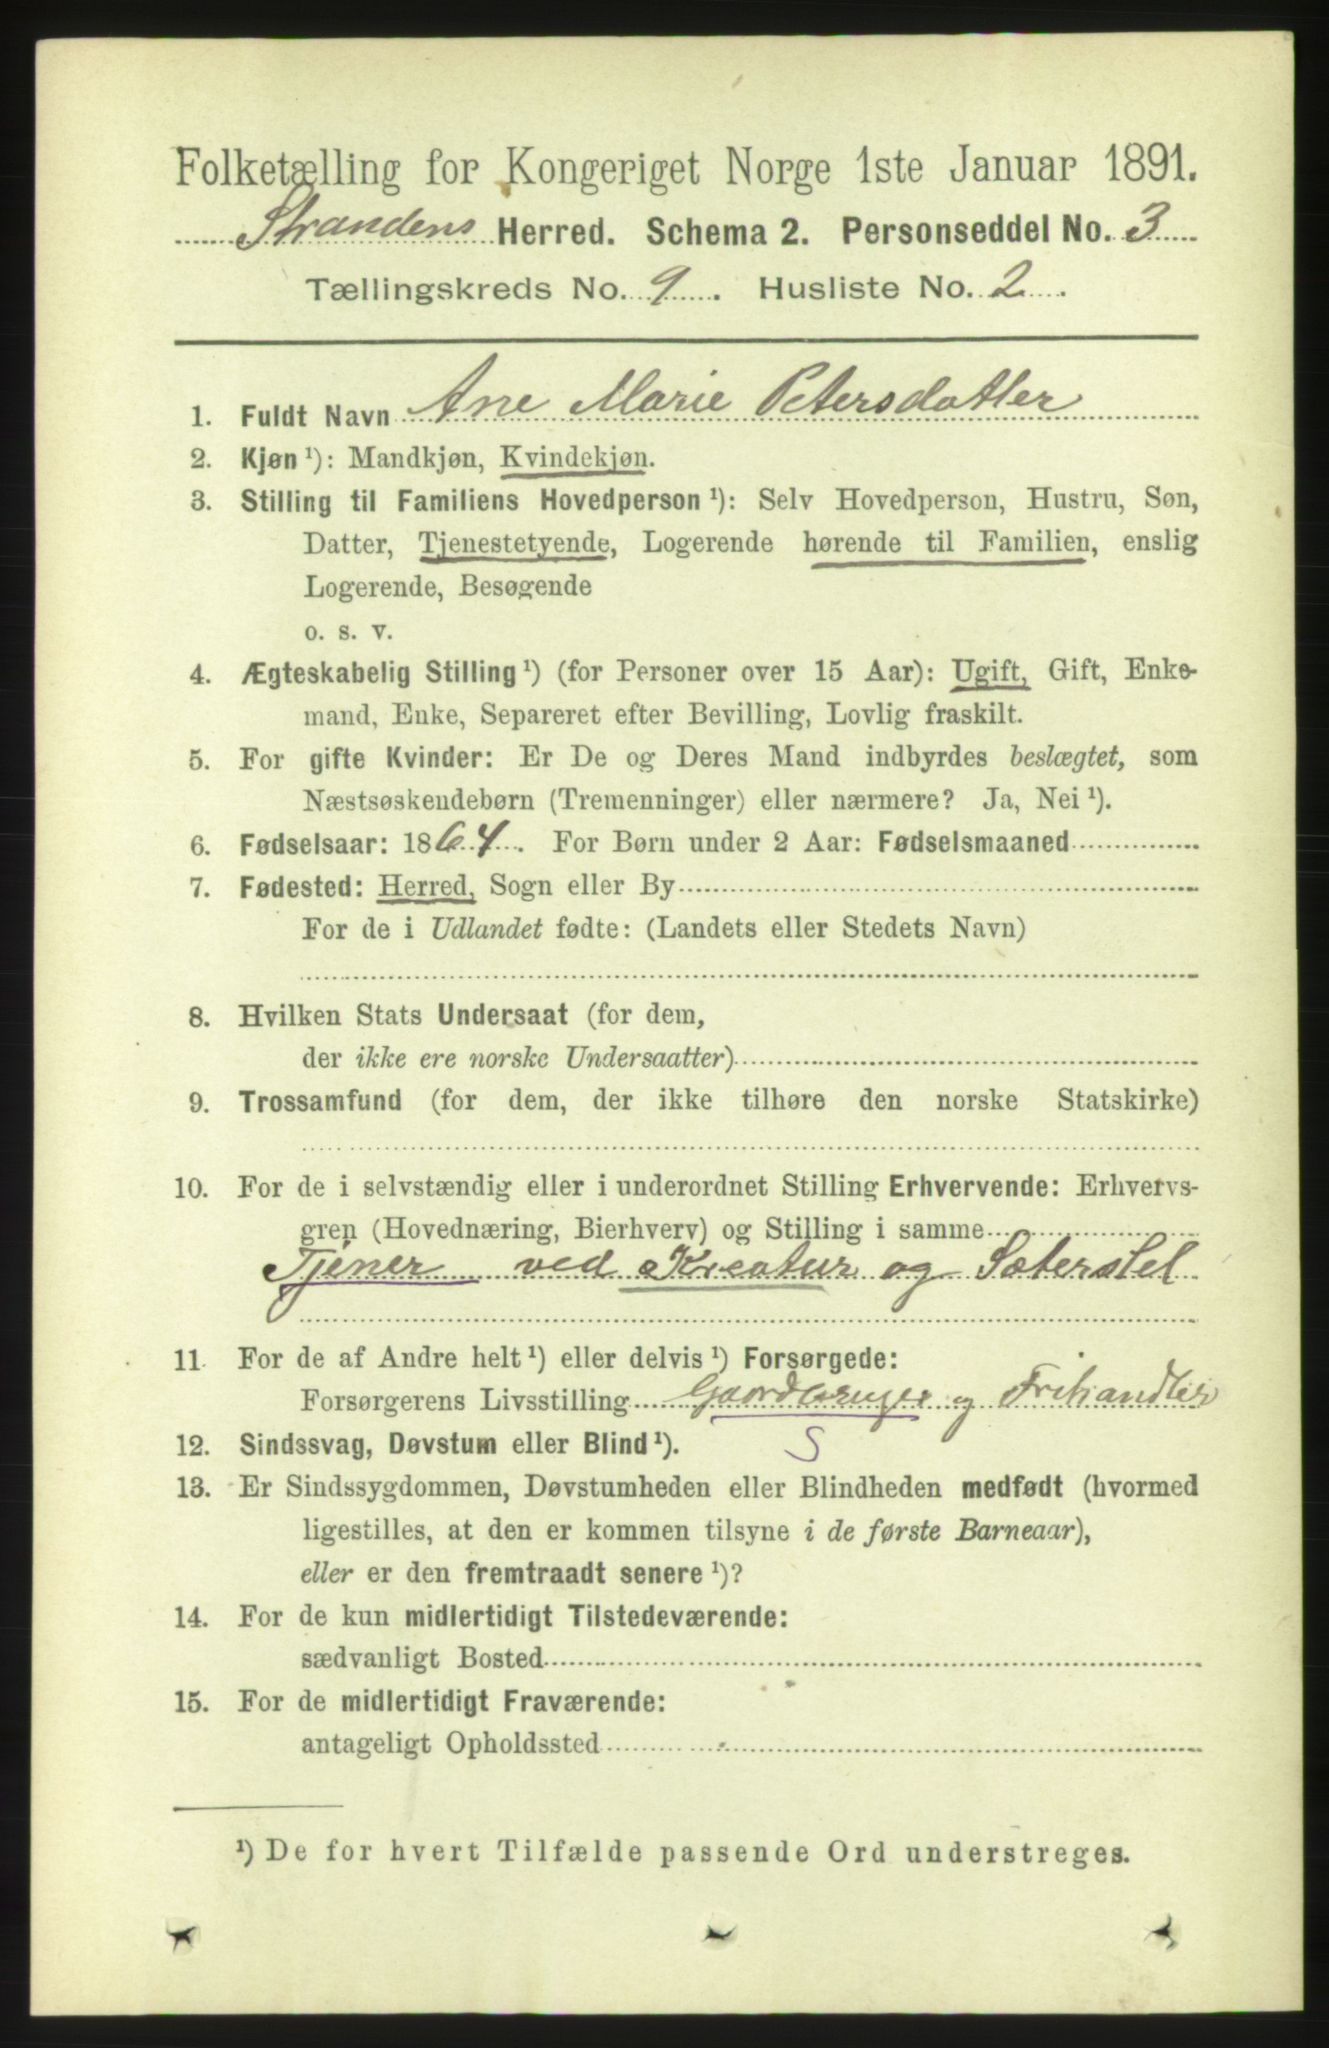 Folketælling for Kongeriget Norge 1ste Januar 1891.
Strandens Herred. Schema 2. Personseddel No. 3
Tællingskreds No. 9. Husliste No. 2.
1. Fuldt Navn Ane Marie Petersdatter
2. Kjøn ¹): Mandkjøn, Kvindekjøn.
3. Stilling til Familiens Hovedperson ¹): Selv Hovedperson, Hustru, Søn,
Datter, Tjenestetyende, Logerende hørende til Familien, enslig
Logerende, Besøgende
o. s. v.
4. Ægteskabelig Stilling ¹) (for Personer over 15 Aar): Ugift, Gift, Enke-
mand, Enke, Separeret efter Bevilling, Lovlig fraskilt.
5. For gifte Kvinder: Er De og Deres Mand indbyrdes beslægtet, som
Næstsøskendebørn (Tremenninger) eller nærmere? Ja, Nei ¹).
6. Fødselsaar: 1864. For Børn under 2 Aar: Fødselsmaaned
7. Fødested: Herred, Sogn eller By
For de i Udlandet fødte: (Landets eller Stedets Navn)
8. Hvilken Stats Undersaat (for dem,
der ikke ere norske Undersaatter)
9. Trossamfund (for dem, der ikke tilhøre den norske Statskirke)
10. For de i selvstændig eller i underordnet Stilling Erhvervende: Erhvervs-
gren (Hovednæring, Bierhverv) og Stilling i samme
Tjener ved Kreatur og Sæterstel
11. For de af Andre helt ¹) eller delvis ¹) Forsørgede:
Forsørgerens Livsstilling Gaardbruger og Frihandler
12. Sindssvag, Døvstum eller Blind ¹). S
13. Er Sindssygdommen, Døvstumheden eller Blindheden medfødt (hvormed
ligestilles, at den er kommen tilsyne i de første Barneaar),
eller er den fremtraadt senere ¹)?
14. For de kun midlertidigt Tilstedeværende:
sædvanligt Bosted
15. For de midlertidigt Fraværende:
antageligt Opholdssted
¹) De for hvert Tilfælde passende Ord understreges.